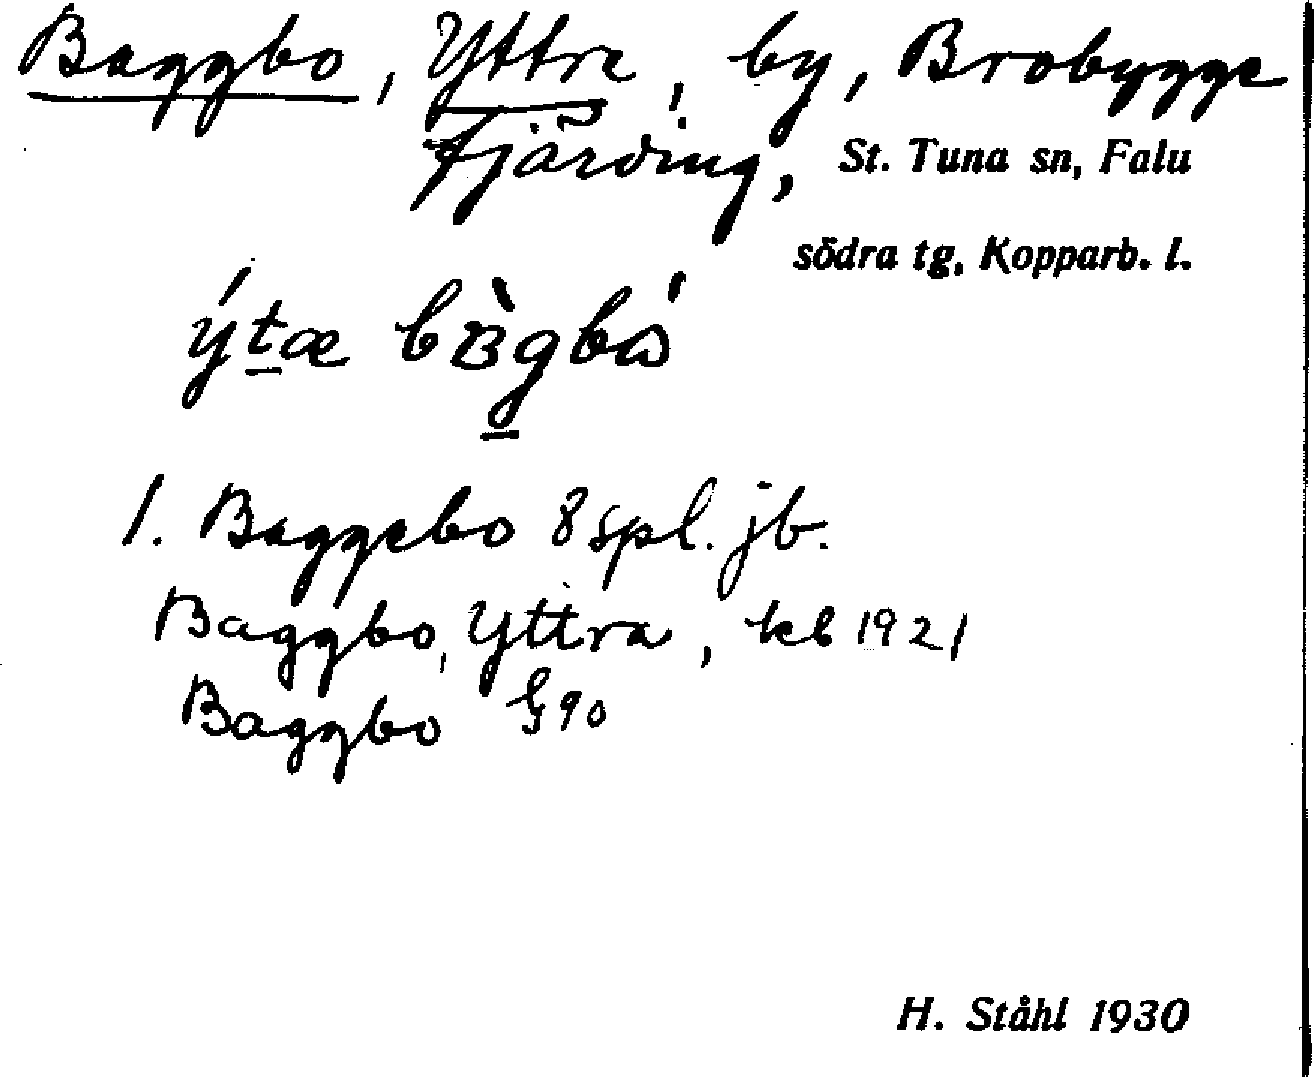 Baggbo, Yttre!, by, Brobygge
fjärding, St. Tuna sn, Falu
södra tg, Kopparb. l.
ýt̠æ bɞ̀g̠bɷ́
1. Baggebo 8 spl. jb.
Baggbo, Yttra, kb 1921
Baggbo G 90
H. Ståhl 1930